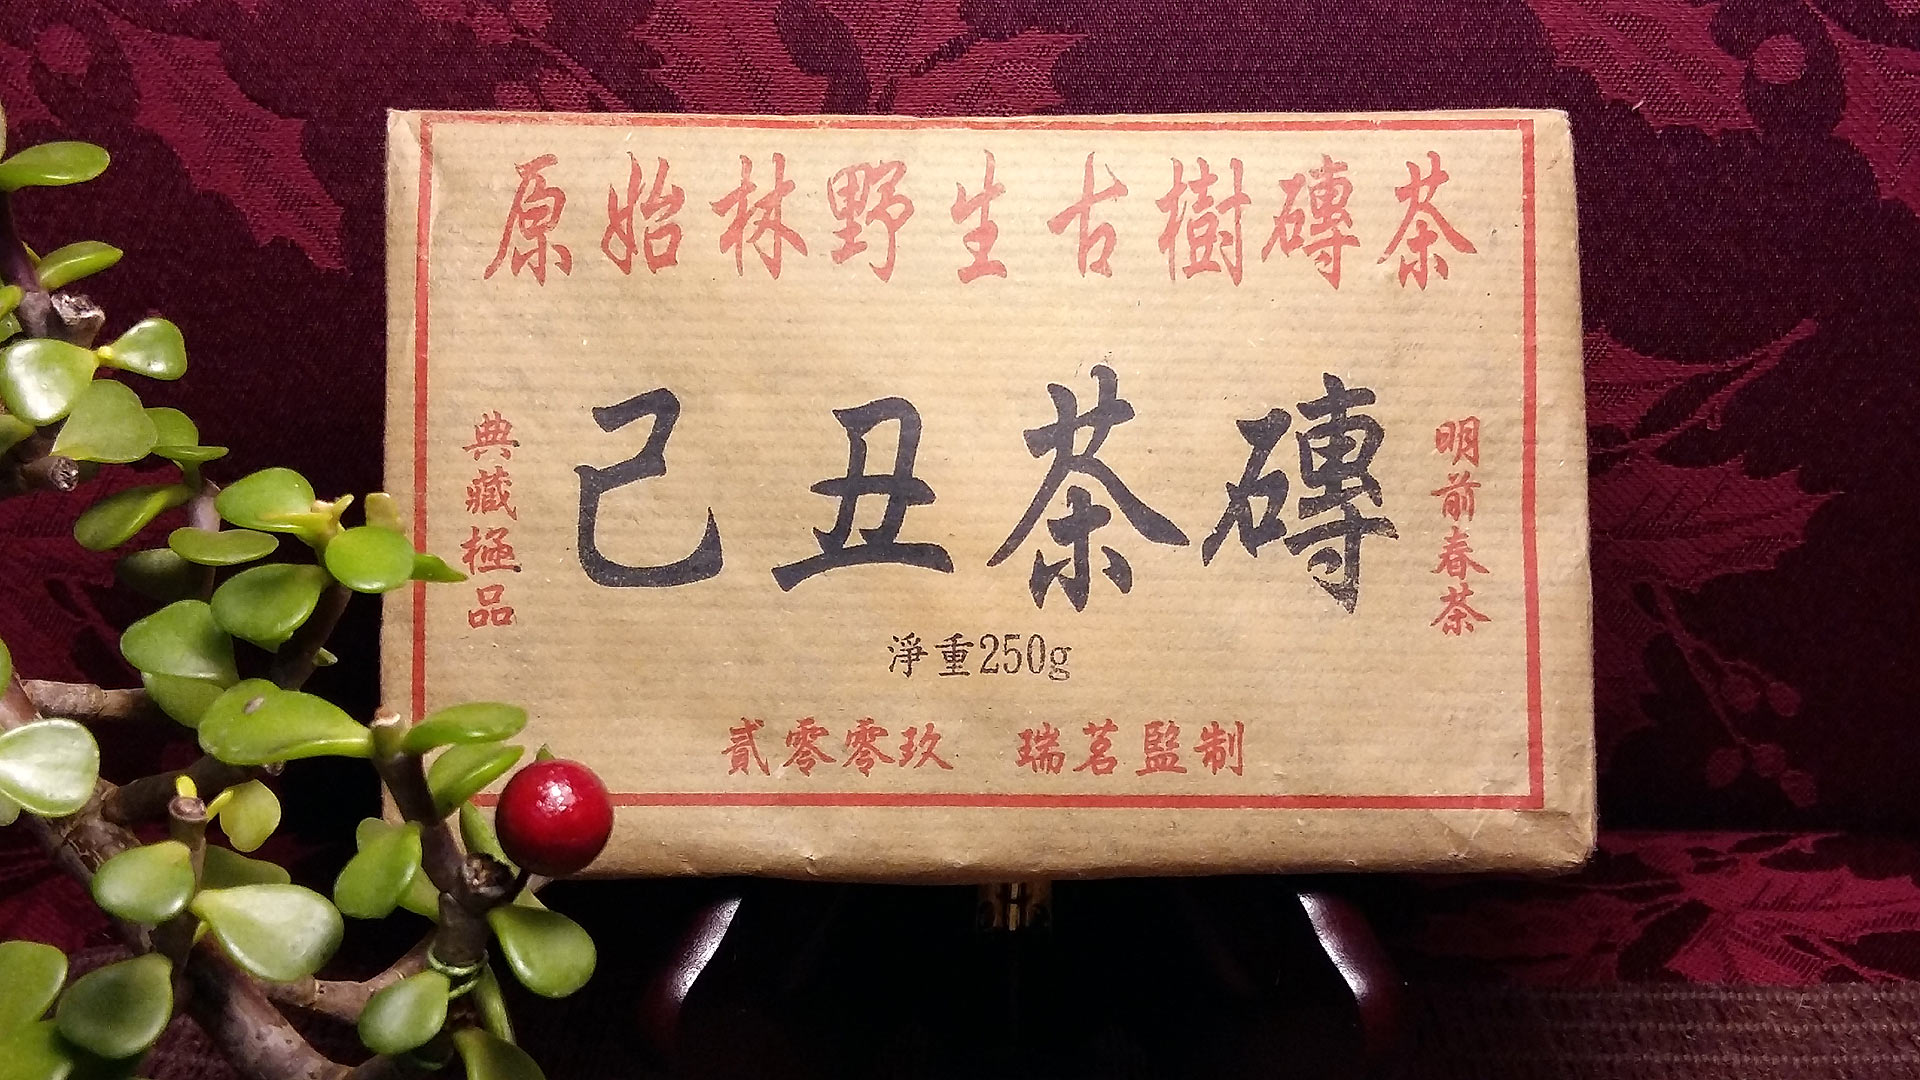 原始林野生古樹磚茶
己丑茶磚
典藏極品
明前春茶
淨重250g
貳零零玖 瑞茗監制